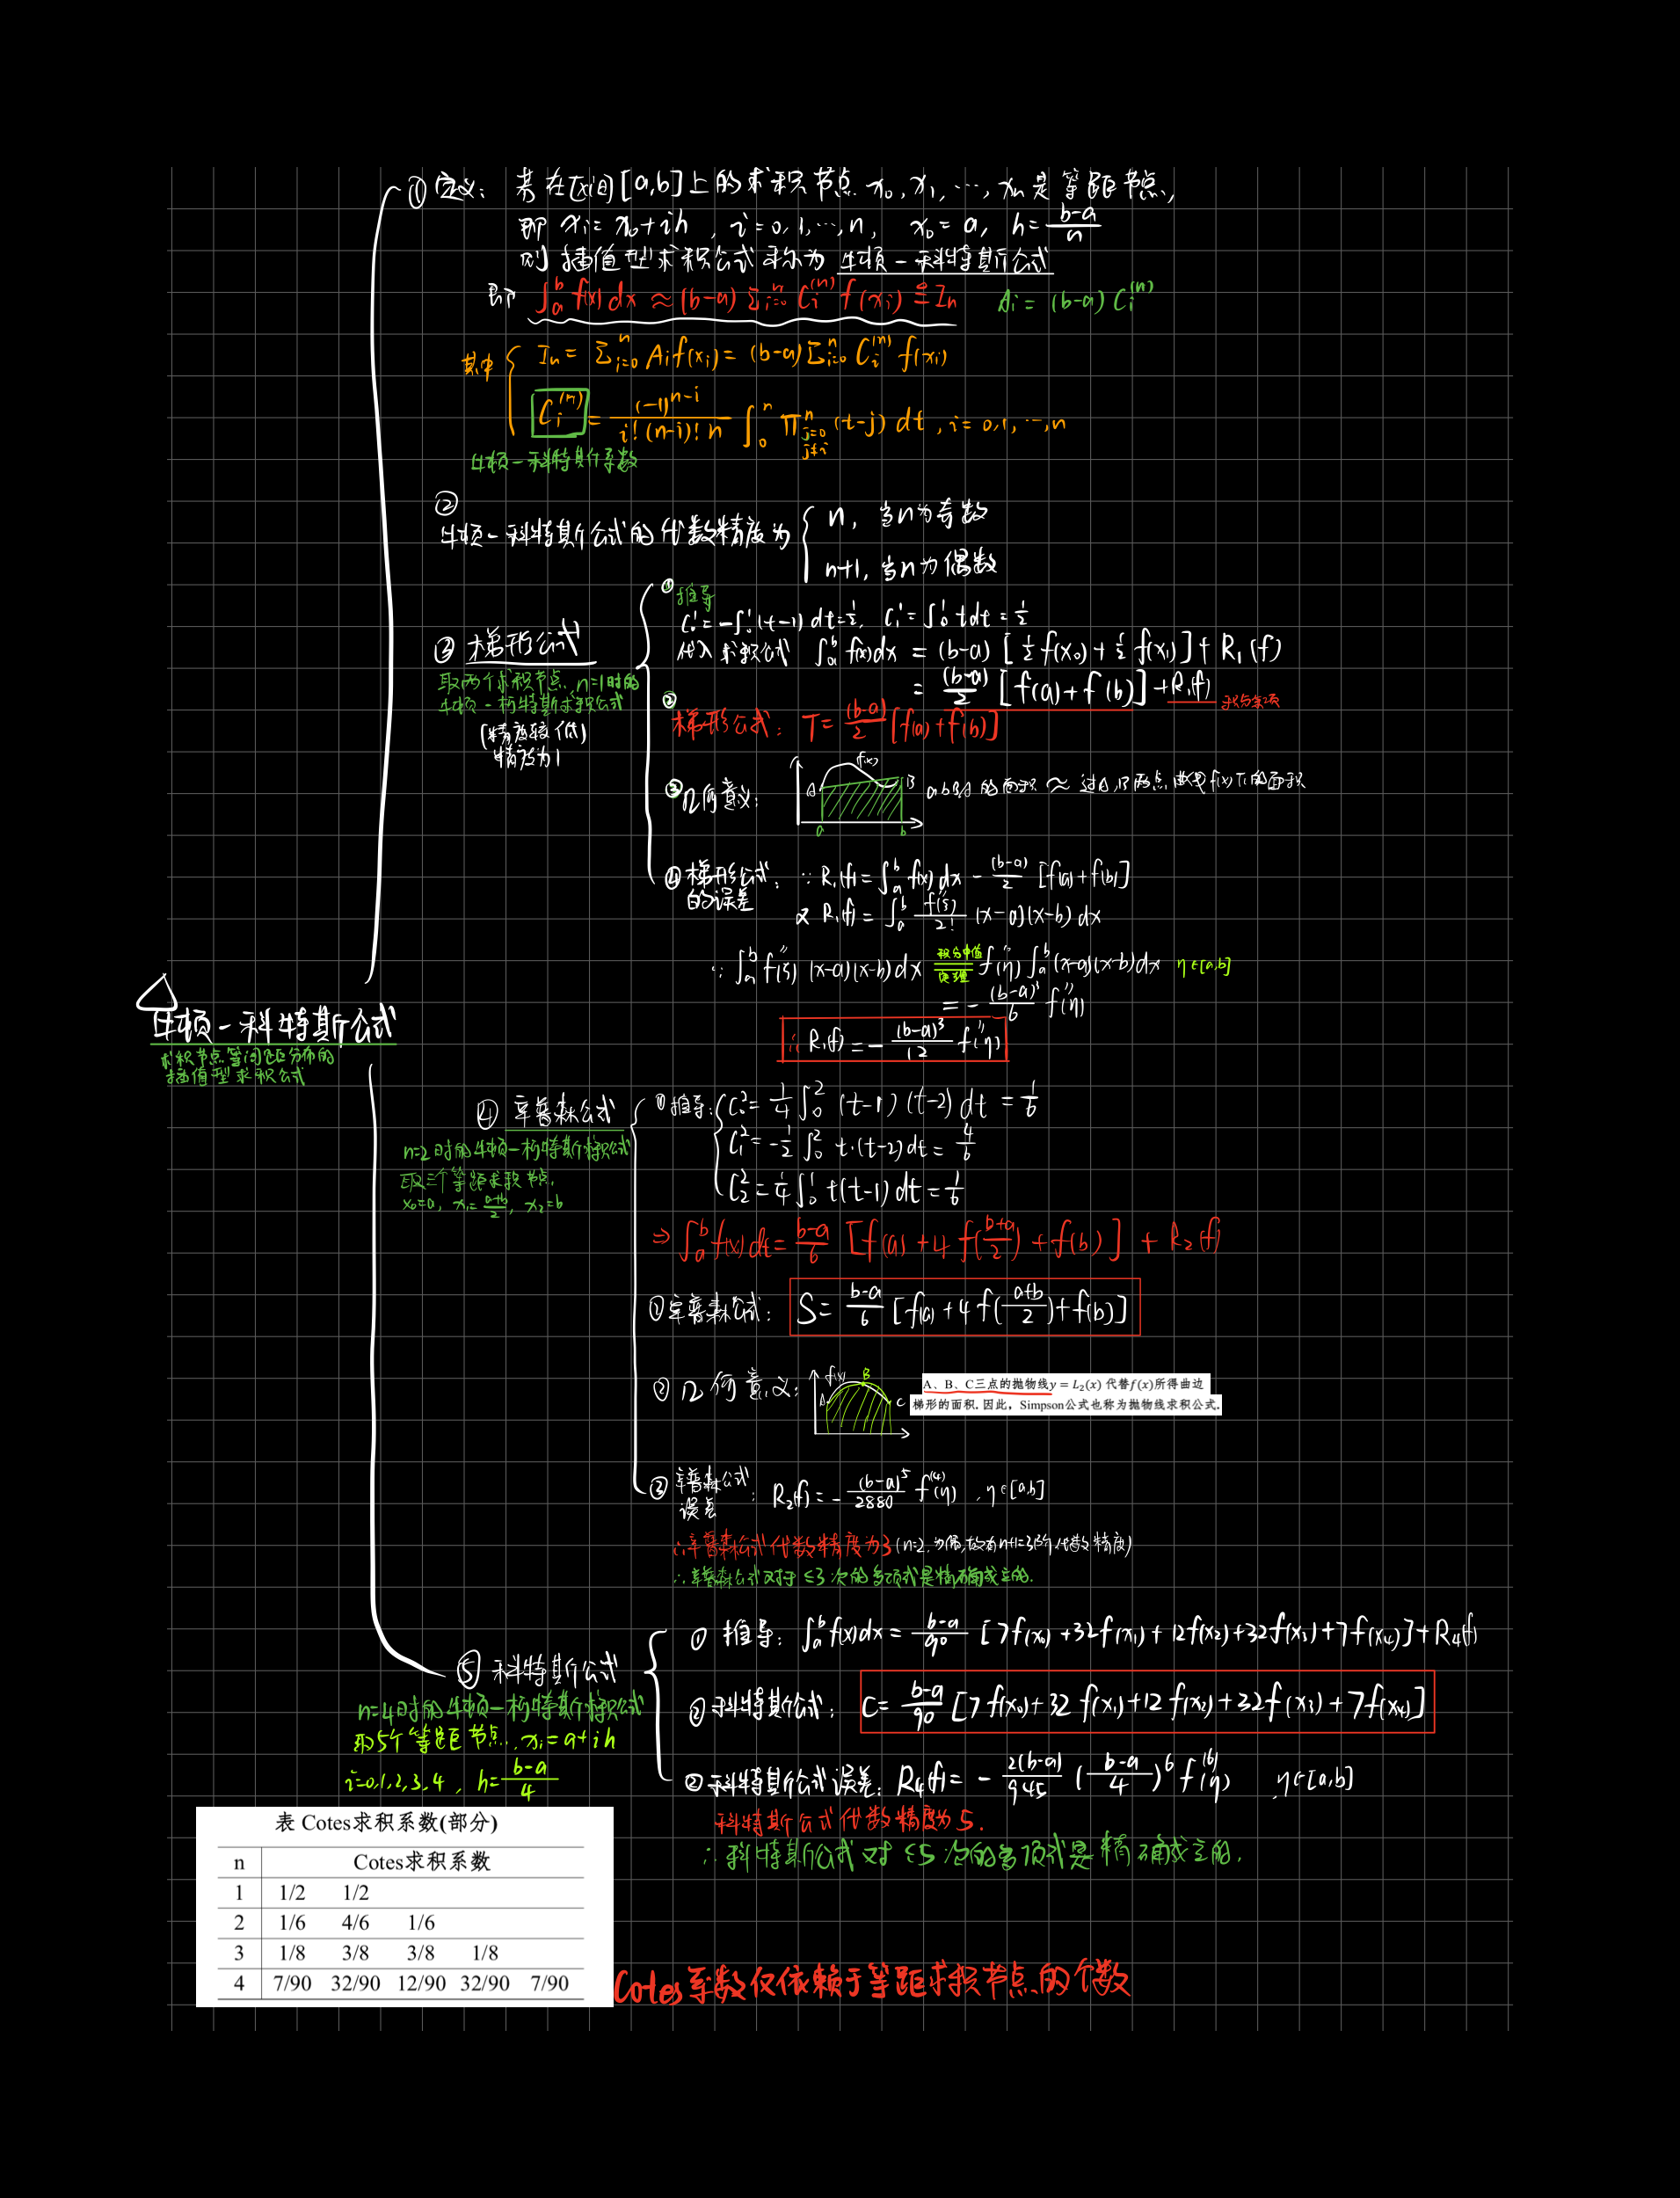 ① 定义: 若在区间[a,b]上的求积节点 x₀, x₁, ⋯, xₙ 是等距节点,
即 xᵢ = x₀+ih , i=0,1,⋯,n, x₀=a, h=(b-a)/n
则插值型求积公式称为牛顿-科特斯公式
即 ∫ₐᵇ f(x)dx ≈ (b-a) Σᵢ₌₀ⁿ Cᵢ⁽ⁿ⁾ f(xᵢ) ≜ Iₙ Aᵢ = (b-a) Cᵢ⁽ⁿ⁾
其中 { Iₙ = Σᵢ₌₀ⁿ Aᵢ f(xᵢ) = (b-a) Σᵢ₌₀ⁿ Cᵢ⁽ⁿ⁾ f(xᵢ)
Cᵢ⁽ⁿ⁾ = (-1)ⁿ⁻ⁱ / (i!(n-i)! n) ∫₀ⁿ ∏ⁿ_{j=0, j≠i} (t-j) dt , i=0,1,⋯,n
牛顿-科特斯系数
②
牛顿-科特斯公式的代数精度为 { n, 当n为奇数
n+1, 当n为偶数
③ 梯形公式
取两个求积节点, n=1时的
牛顿-柯特斯求积公式
(精度较低)
精度为1
① 推导
C₀¹ = -∫₀¹ (t-1) dt = 1/2, C₁¹ = ∫₀¹ t dt = 1/2
代入求积公式 ∫ₐᵇ f(x)dx = (b-a) [1/2 f(x₀) + 1/2 f(x₁)] + R₁(f)
= (b-a)/2 [f(a)+f(b)] + R₁(f) 积分余项
② 梯形公式: T = (b-a)/2 [f(a)+f(b)]
③ 几何意义:
f(x)
A B
a b
abBA 的面积 ≈ 过A,B两点,曲线f(x)下的面积
④ 梯形公式的误差: ∵ R₁(f) = ∫ₐᵇ f(x)dx - (b-a)/2 [f(a)+f(b)]
又 R₁(f) = ∫ₐᵇ f''(ξ)/2! (x-a)(x-b) dx
∵ ∫ₐᵇ f''(ξ) (x-a)(x-b)dx 积分中值定理 f''(η) ∫ₐᵇ (x-a)(x-b)dx η∈[a,b]
= -(b-a)³/6 f''(η)
∴ R₁(f) = -(b-a)³/12 f''(η)
牛顿-科特斯公式
求积节点等间距分布的
插值型求积公式
④ 辛普森公式
n=2时的牛顿-柯特斯求积公式
取三个等距求积节点,
x₀=a, x₁=(a+b)/2, x₂=b
① 推导: { C₀² = 1/4 ∫₀² (t-1)(t-2) dt = 1/6
C₁² = -1/2 ∫₀² t·(t-2)dt = 4/6
C₂² = 1/4 ∫₀¹ t(t-1) dt = 1/6
⇒ ∫ₐᵇ f(x)dt = (b-a)/6 [f(a) + 4 f((b+a)/2) + f(b)] + R₂(f)
① 辛普森公式: S = (b-a)/6 [f(a) + 4 f((a+b)/2) + f(b)]
② 几何意义:
f(x)
A B C
A、B、C三点的抛物线y = L₂(x) 代替f(x)所得曲边
梯形的面积. 因此, Simpson公式也称为抛物线求积公式.
③ 辛普森公式误差: R₂(f) = -(b-a)⁵/2880 f⁽⁴⁾(η) , η∈[a,b]
∴ 辛普森公式代数精度为3 (n=2, 为偶,故有n+1=3阶代数精度)
∴ 辛普森公式对于≤3次的多项式是精确成立的.
⑤ 科特斯公式
n=4时的牛顿-柯特斯求积公式
取5个等距节点, xᵢ = a+ih
i=0,1,2,3,4 , h=(b-a)/4
① 推导: ∫ₐᵇ f(x)dx = (b-a)/90 [7f(x₀)+32f(x₁)+12f(x₂)+32f(x₃)+7f(x₄)]+R₄(f)
② 科特斯公式: C = (b-a)/90 [7f(x₀)+32f(x₁)+12f(x₂)+32f(x₃)+7f(x₄)]
② 科特斯公式误差: R₄(f) = -2(b-a)/945 ((b-a)/4)⁶ f⁽⁶⁾(η) , η∈[a,b]
科特斯公式代数精度为5.
∴ 科特斯公式对≤5次的多项式是精确成立的.
表 Cotes求积系数(部分)
n Cotes求积系数
1 1/2 1/2
2 1/6 4/6 1/6
3 1/8 3/8 3/8 1/8
4 7/90 32/90 12/90 32/90 7/90
Cotes系数仅依赖于等距求积节点的个数